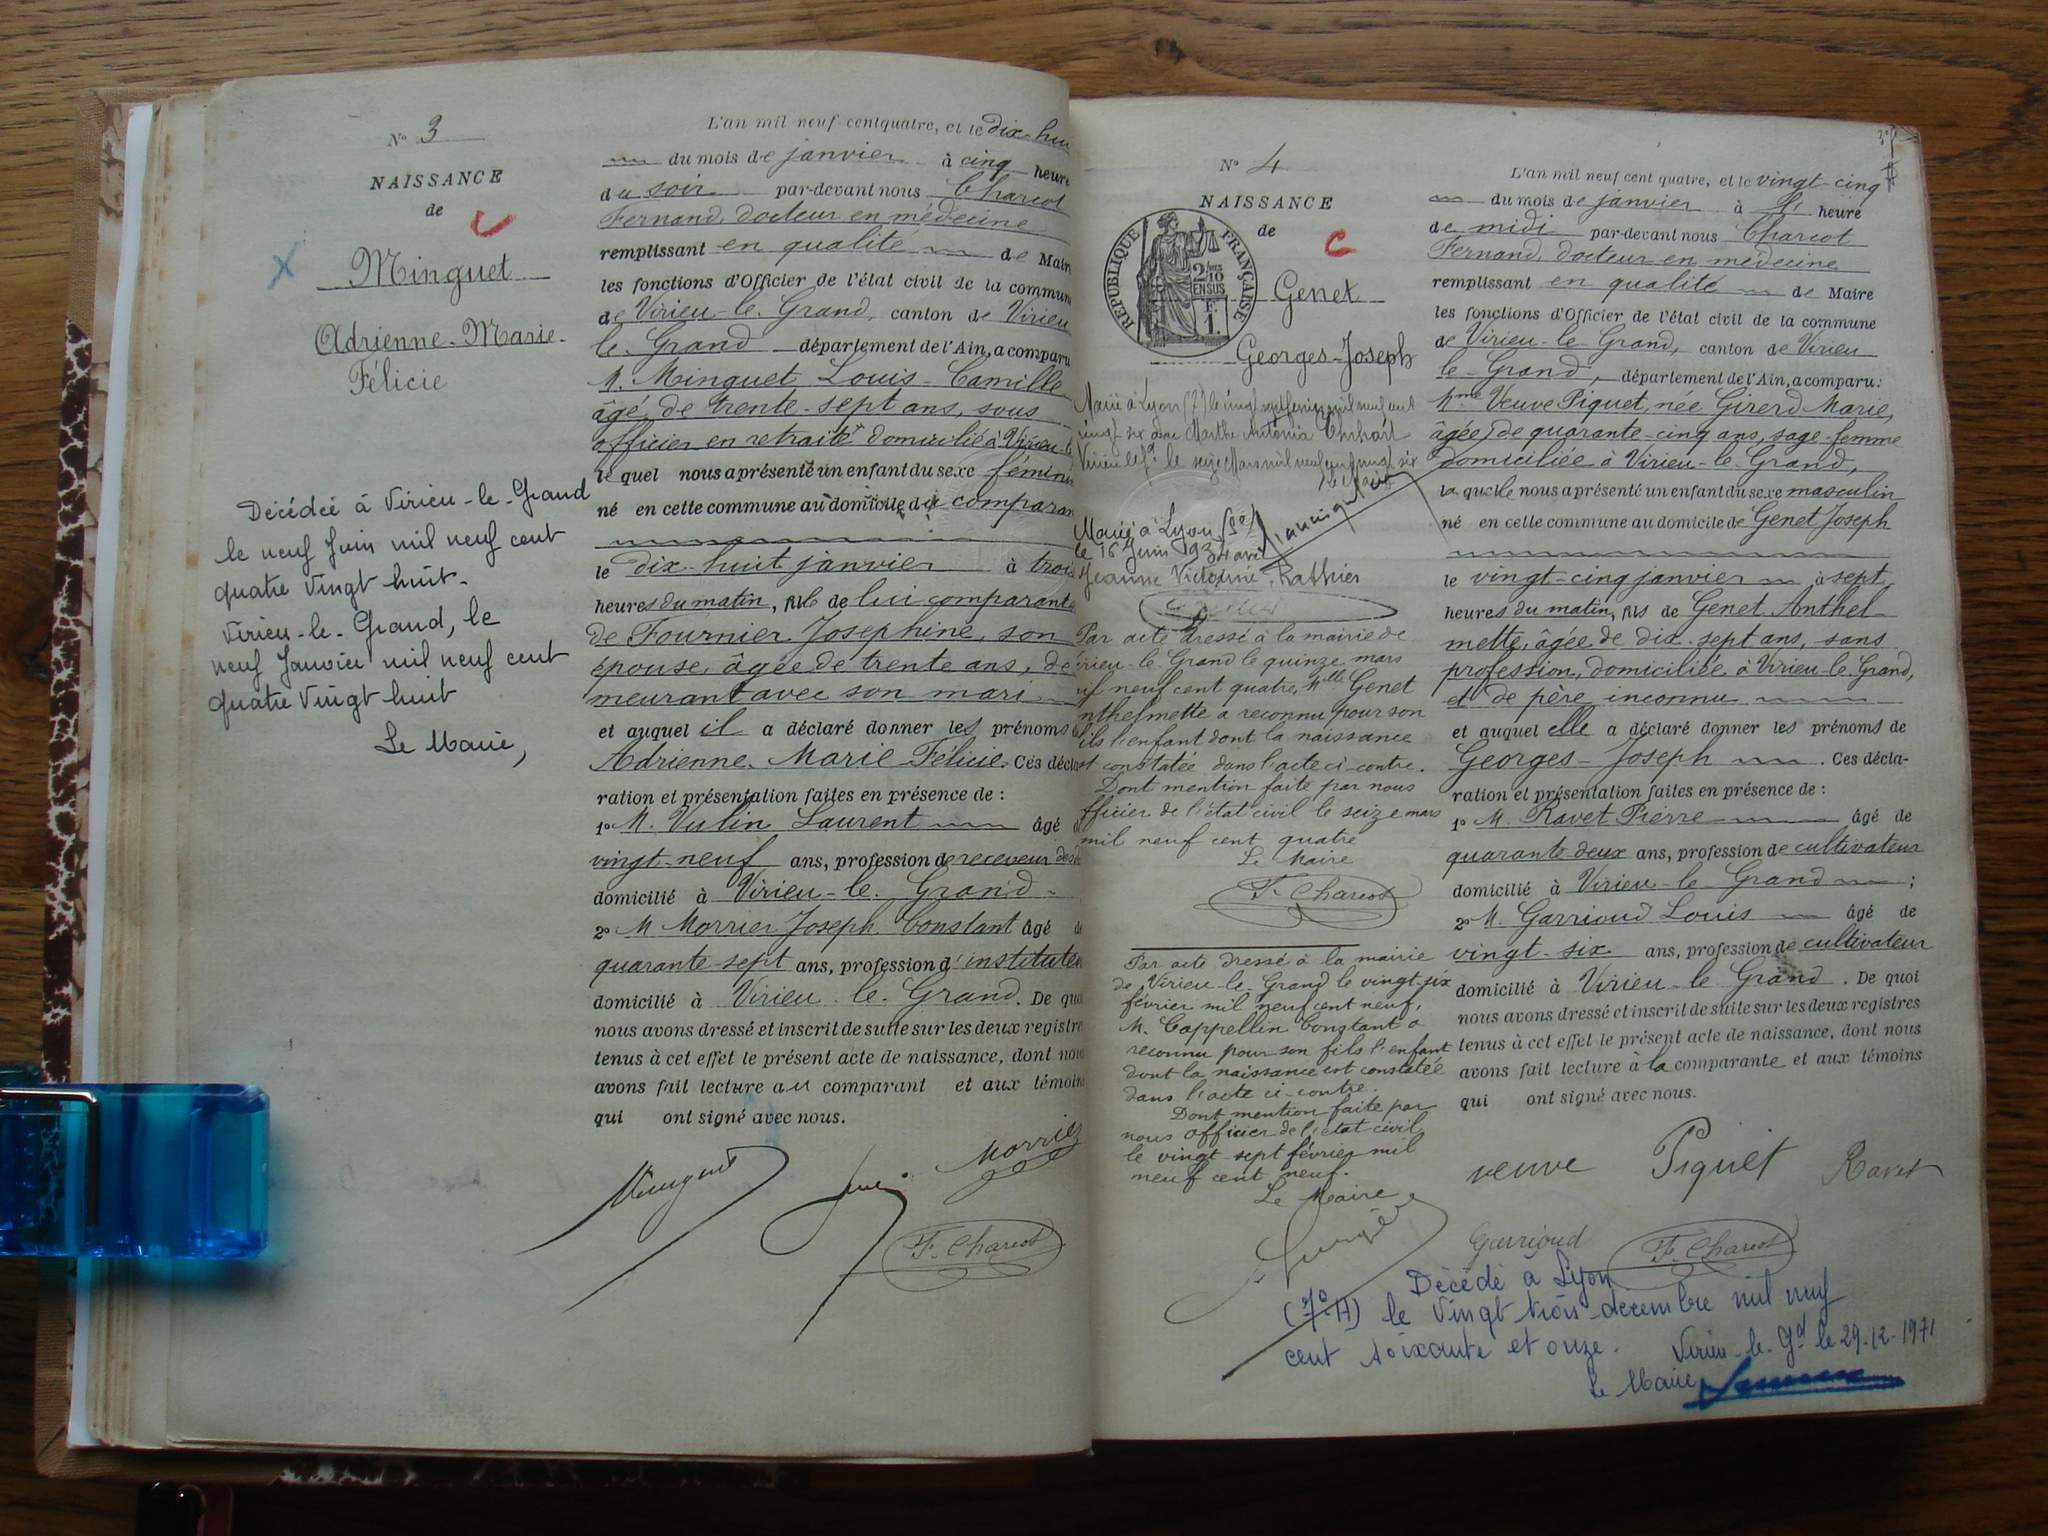 N° 3
NAISSANCE
de
C
X
Minguet
Adrienne-Marie-
Félicie
Décédée à Virieu-le-Grand
le neuf Juin mil neuf cent
quatre Vingt huit.
Virieu-le-Grand, le
neuf Janvier mil neuf cent
quatre Vingt huit
Le Maire,
L'an mil neuf cent quatre, et le dix-hui
du mois de janvier à cinq heure
du soir par-devant nous Charcot
Fernand, docteur en médecine
remplissant en qualité de Maire
les fonctions d'Officier de l'état civil de la commune
de Virieu-le-Grand, canton de Virieu
le-Grand département de l'Ain, a comparu
M. Minguet Louis-Camille
âgé de trente-sept ans, sous
officier en retraite domicilié à Virieu-le
le quel nous a présenté un enfant du sexe fémini
né en cette commune au domicile du comparan
le dix-huit janvier à trois
heures du matin, fils de lui comparant e
de Fournier Joséphine, son
épouse, âgée de trente ans, de
meurant avec son mari
et auquel il a déclaré donner les prénoms d
Adrienne-Marie-Félicie. Ces décla
ration et présentation faites en présence de :
1° M. Vulin Laurent âgé d
vingt-neuf ans, profession de receveur des
domicilié à Virieu-le-Grand
2° M Morrier Joseph Constant âgé de
quarante-sept ans, profession d'instituteu
domicilié à Virieu-le-Grand. De quoi
nous avons dressé et inscrit de suite sur les deux registre
tenus à cet effet le présent acte de naissance, dont nous
avons fait lecture au comparant et aux témoins
qui ont signé avec nous.
Minguet
Morrier
F. Charcot
N° 4
NAISSANCE
de
C
RÉPUBLIQUE FRANÇAISE
2/10
EN SUS
F.
1.
Genet
Georges-Joseph
Marié à Lyon (7) le vingt-sept février mil neuf cent
vingt six avec Marthe Antonia
Virieu le Gd le seize Mars mil neuf cent vingt six
Le Maire
Marié à Lyon
le 16 Juin 1934 avec
Jeanne Victorine Rathier
Par acte dressé à la mairie de
Virieu-le-Grand le quinze mars
mil neuf cent quatre, Melle Genet
Anthelmette a reconnu pour son
fils l'enfant dont la naissance
est constatée dans l'acte ci-contre.
Dont mention faite par nous
officier de l'état civil le seize mars
mil neuf cent quatre
Le Maire
F. Charcot
Par acte dressé à la mairie
de Virieu-le-Grand le vingt-six
février mil neuf cent neuf,
M. Cappellin Constant a
reconnu pour son fils l'enfant
dont la naissance est constatée
dans l'acte ci-contre.
Dont mention faite par
nous officier de l'état civil,
le vingt-sept février mil
neuf cent neuf.
Le Maire
L'an mil neuf cent quatre, et le vingt-cinq
du mois de janvier à heure
de midi par-devant nous Charcot
Fernand, docteur en médecine
remplissant en qualité de Maire
les fonctions d'Officier de l'état civil de la commune
de Virieu-le-Grand, canton de Virieu
le-Grand, département de l'Ain, a comparu :
Mme Veuve Piquet, née Girerd Marie,
âgée de quarante-cinq ans, sage-femme
domiciliée à Virieu-le-Grand,
la quelle nous a présenté un enfant du sexe masculin
né en cette commune au domicile de Genet Joseph
le vingt-cinq janvier à sept
heures du matin, fils de Genet Anthel-
mette, âgée de dix-sept ans, sans
profession, domiciliée à Virieu-le-Grand,
et de père inconnu
et auquel elle a déclaré donner les prénoms de
Georges-Joseph. Ces décla-
ration et présentation faites en présence de :
1° M. Ravet Pierre âgé de
quarante deux ans, profession de cultivateur
domicilié à Virieu-le-Grand ;
2° M. Garrioud Louis âgé de
vingt-six ans, profession de cultivateur
domicilié à Virieu-le-Grand. De quoi
nous avons dressé et inscrit de suite sur les deux registres
tenus à cet effet le présent acte de naissance, dont nous
avons fait lecture à la comparante et aux témoins
qui ont signé avec nous.
veuve Piquet Ravet
Garrioud F. Charcot
Décédé à Lyon
(7e A) le Vingt trois décembre mil neuf
cent soixante et onze. Virieu-le-Gd le 29-12-1971
Le Maire